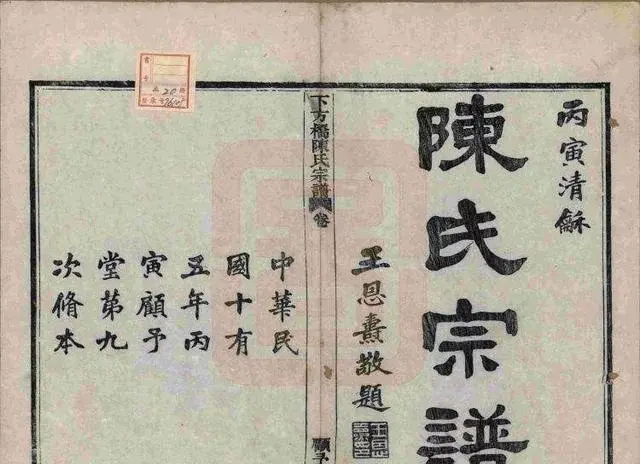 丙寅清龢
陳氏宗譜
王恩燾敬題
下方橋陳氏宗譜 卷
顧予
中華民
國十有
五年丙
寅顧予
堂第九
次脩本
20